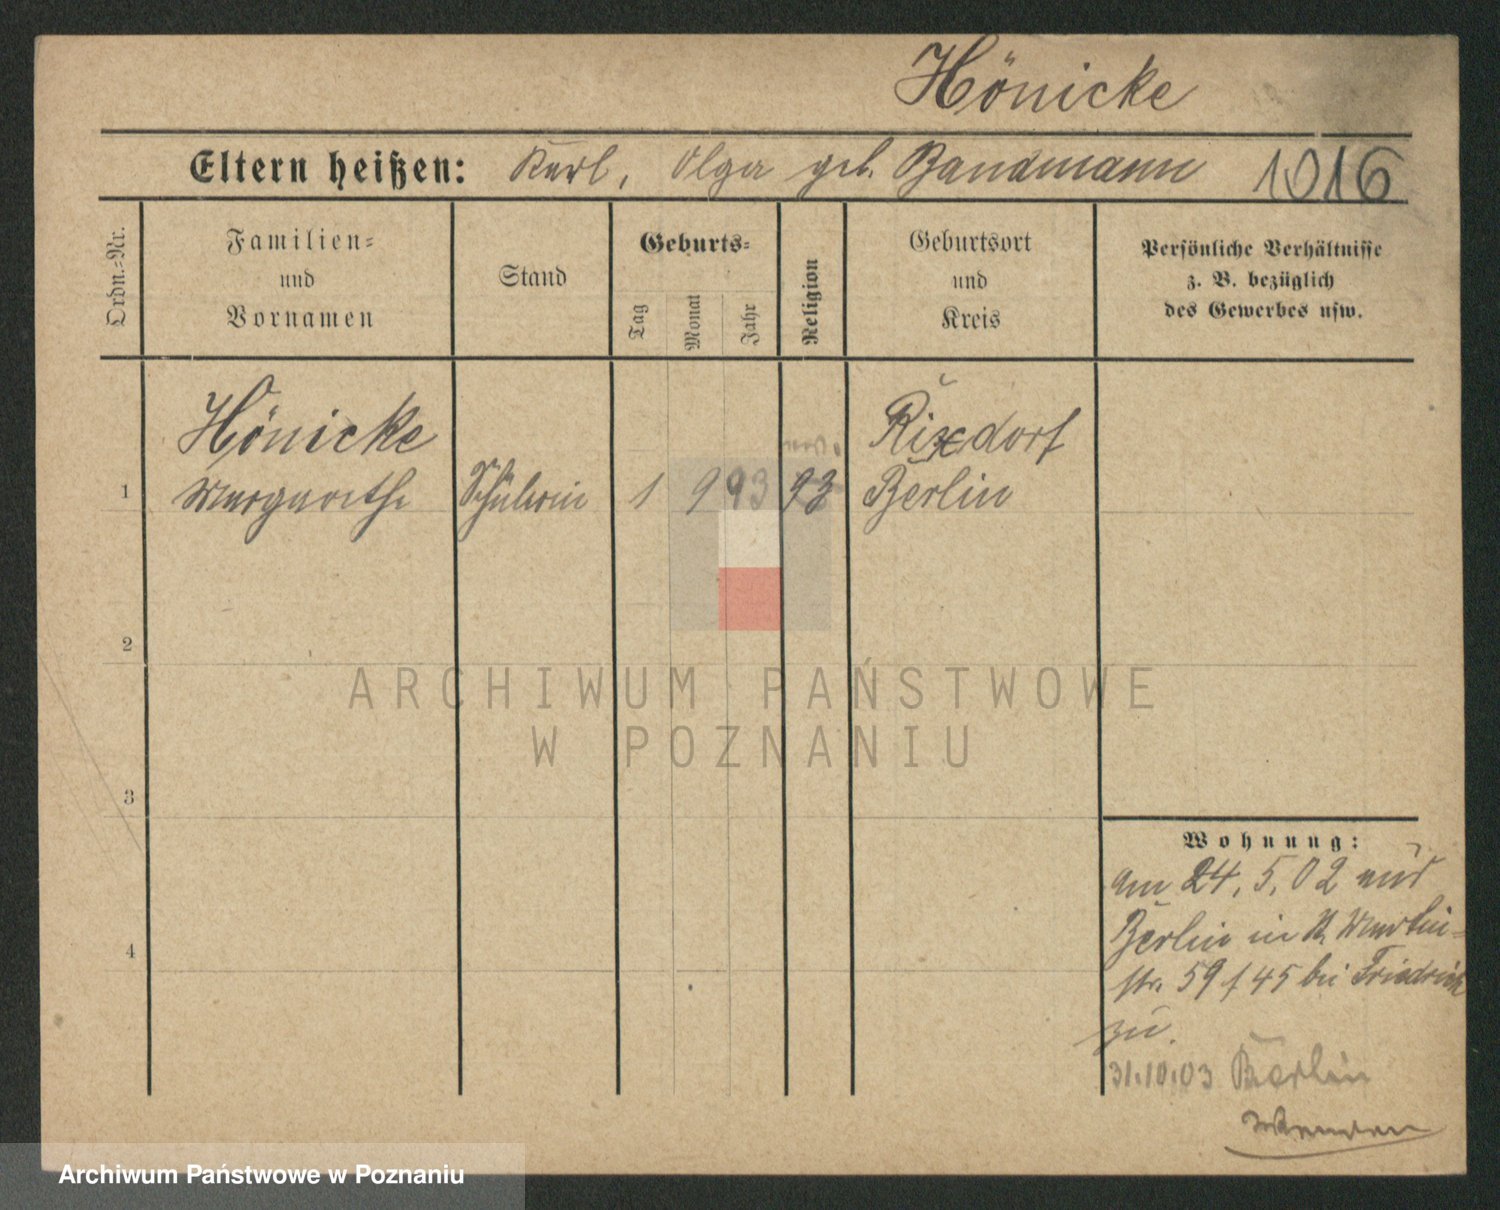 Hönicke
Eltern heißen: Karl, Olga geb. Bandmann 1016
Ordn.-Nr.
Familien-
und
Vornamen
Stand
Geburts-
Tag
Monat
Jahr
Religion
Geburtsort
und
Kreis
Persönliche Verhältnisse
z. B. bezüglich
des Gewerbes usw.
Hönicke Rixdorf
1 Margarethe Schülerin 1 9 93 93 Berlin
2
3
4
Wohnung:
am 24.5.02 aus
Berlin in
str. 59/45 bei Friedrich
zu.
31.10.03 Berlin
ARCHIWUM PAŃSTWOWE
W POZNANIU
Archiwum Państwowe w Poznaniu